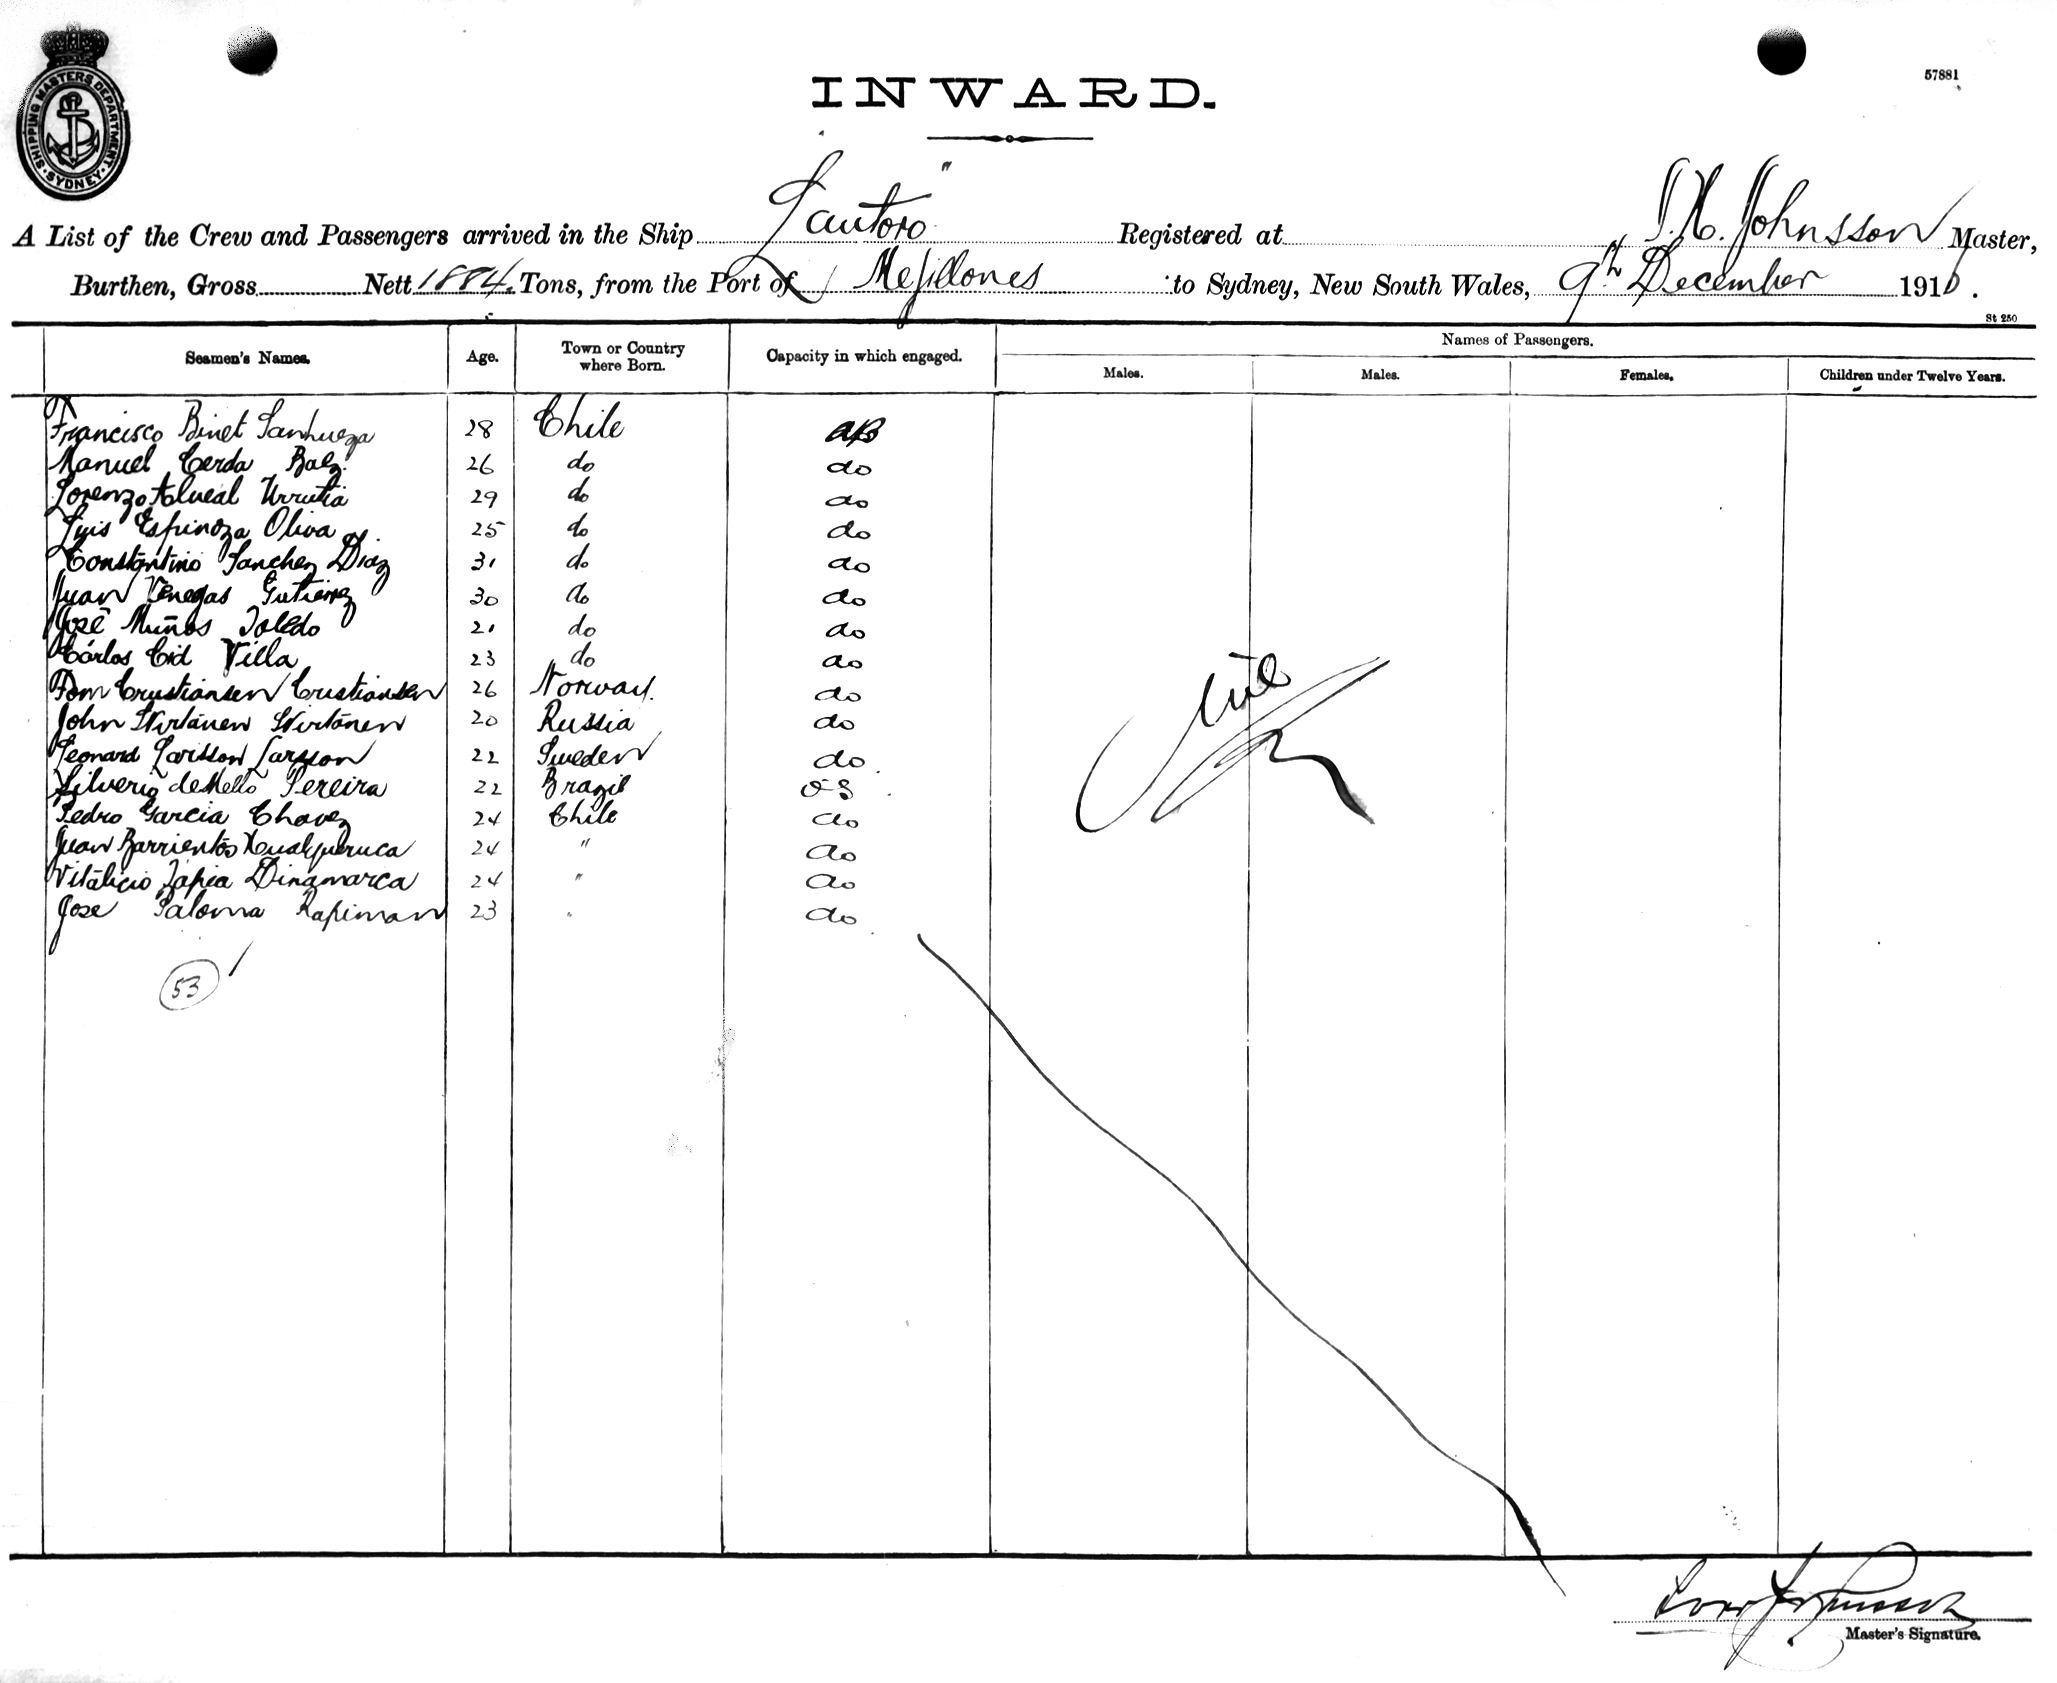 SHIPPING MASTERS DEPARTMENT
SYDNEY
57881
INWARD.
A List of the Crew and Passengers arrived in the Ship "Lautoro" Registered at J. H. Johnsson Master,
Burthen, Gross Nett 1884 Tons, from the Port of Mejillones to Sydney, New South Wales, 9th December 1910.
St 250
Seamen's Names. Age. Town or Country where Born. Capacity in which engaged. Names of Passengers.
Males. Males. Females. Children under Twelve Years.
Francisco Binet Sanhueza 28 Chile AB
Manuel Cerda Baez 26 do do
Lorenzo Alueal Urrutia 29 do do
Luis Espinoza Oliva 25 do do
Constantino Sanchez Diaz 31 do do
Juan Venegas Gutierrez 30 do do
José Muños Toledo 21 do do
Cárlos Cid Villa 23 do do
Tom Cristiansen Cristiansen 26 Norway. do
John Wirtanen Wirtanen 20 Russia do
Leonard Larsson Larsson 22 Sweden do
Silverio deMello Pereira 22 Brazil OS
Pedro Garcia Chavez 24 Chile do
Juan Barrientos 24 " do
Vitalicio Tapia Dinamarca 24 " do
Jose Paloma Rapiman 23 " do
Nil
53
Master's Signature.